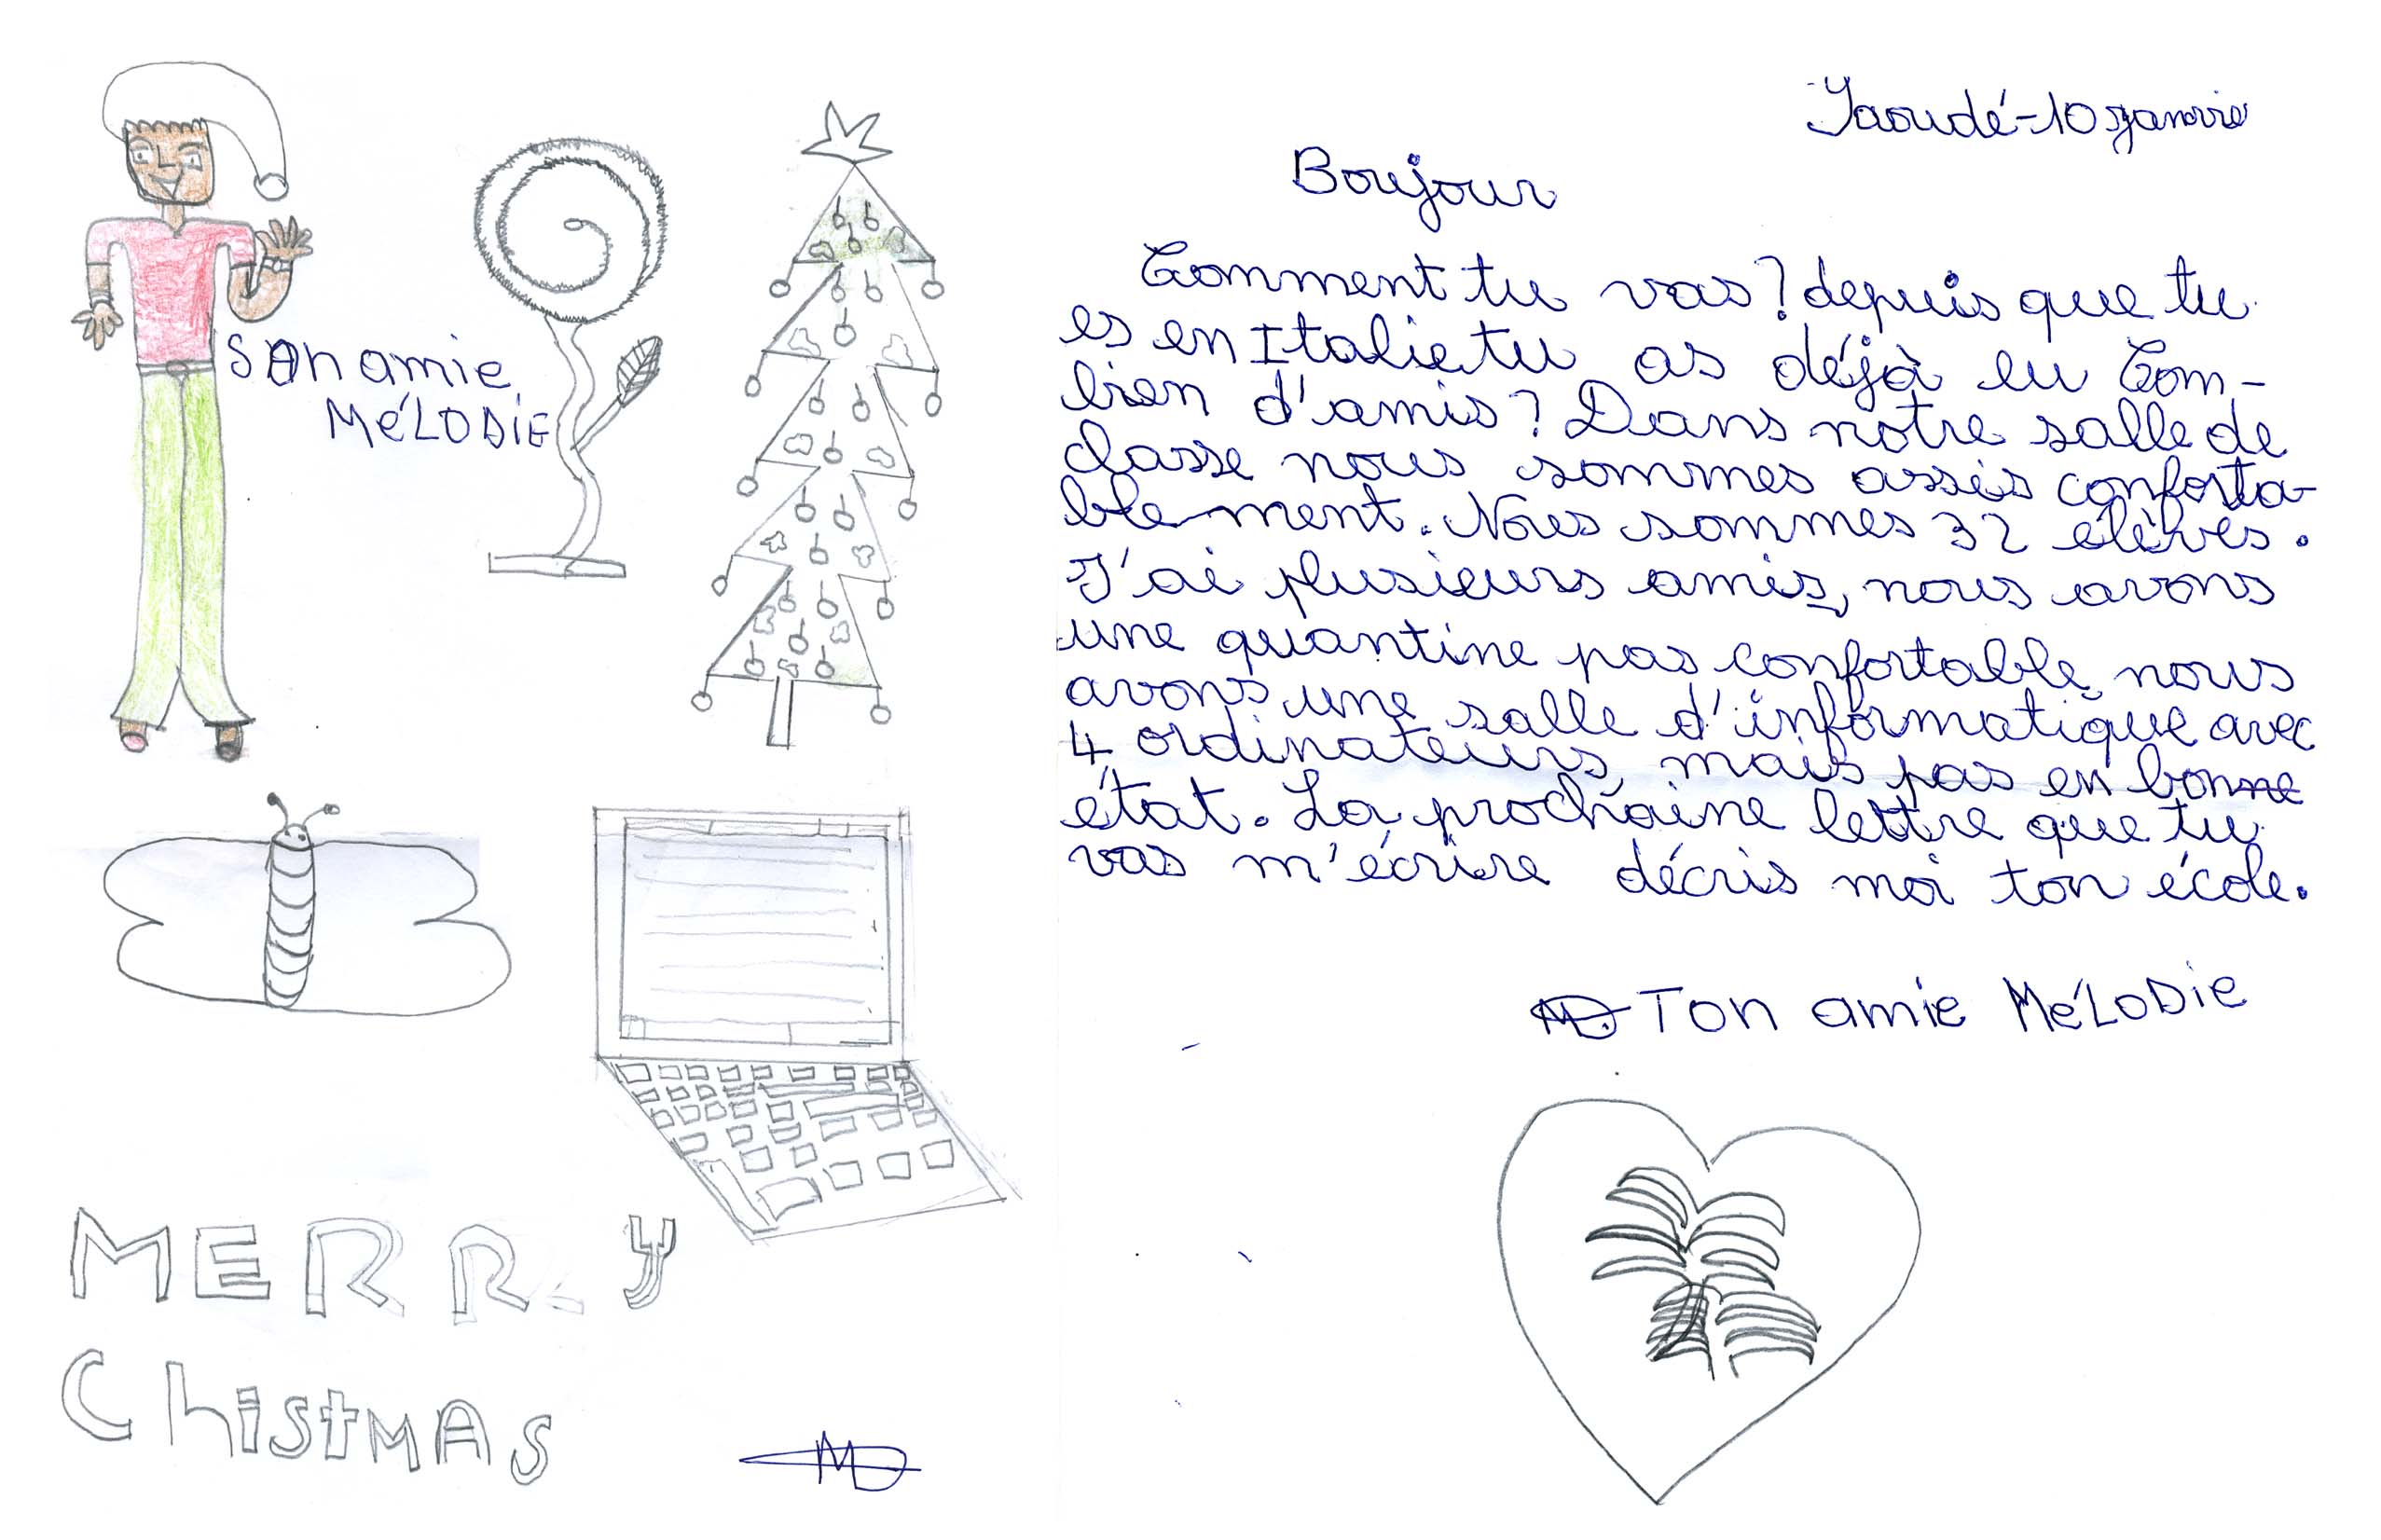 SON amie
MéLODiE
MERRY
ChistMAS
MD
Yaoudé-10 janvie
Boujour
Comment tu vas ? depuis que tu
es en Italie tu as déjà eu Com-
bien d'amis ? Dans notre salle de
classe nous sommes assis conforta-
blement. Nous sommes 32 élèves.
J'ai plusieurs amis, nous avons
une quantine pas confortable, nous
avons une salle d'informatique avec
4 ordinateurs, mais pas en bonne
état. La prochaine lettre que tu
vas m'écrire décris moi ton école.
MD Ton amie MéLODiE